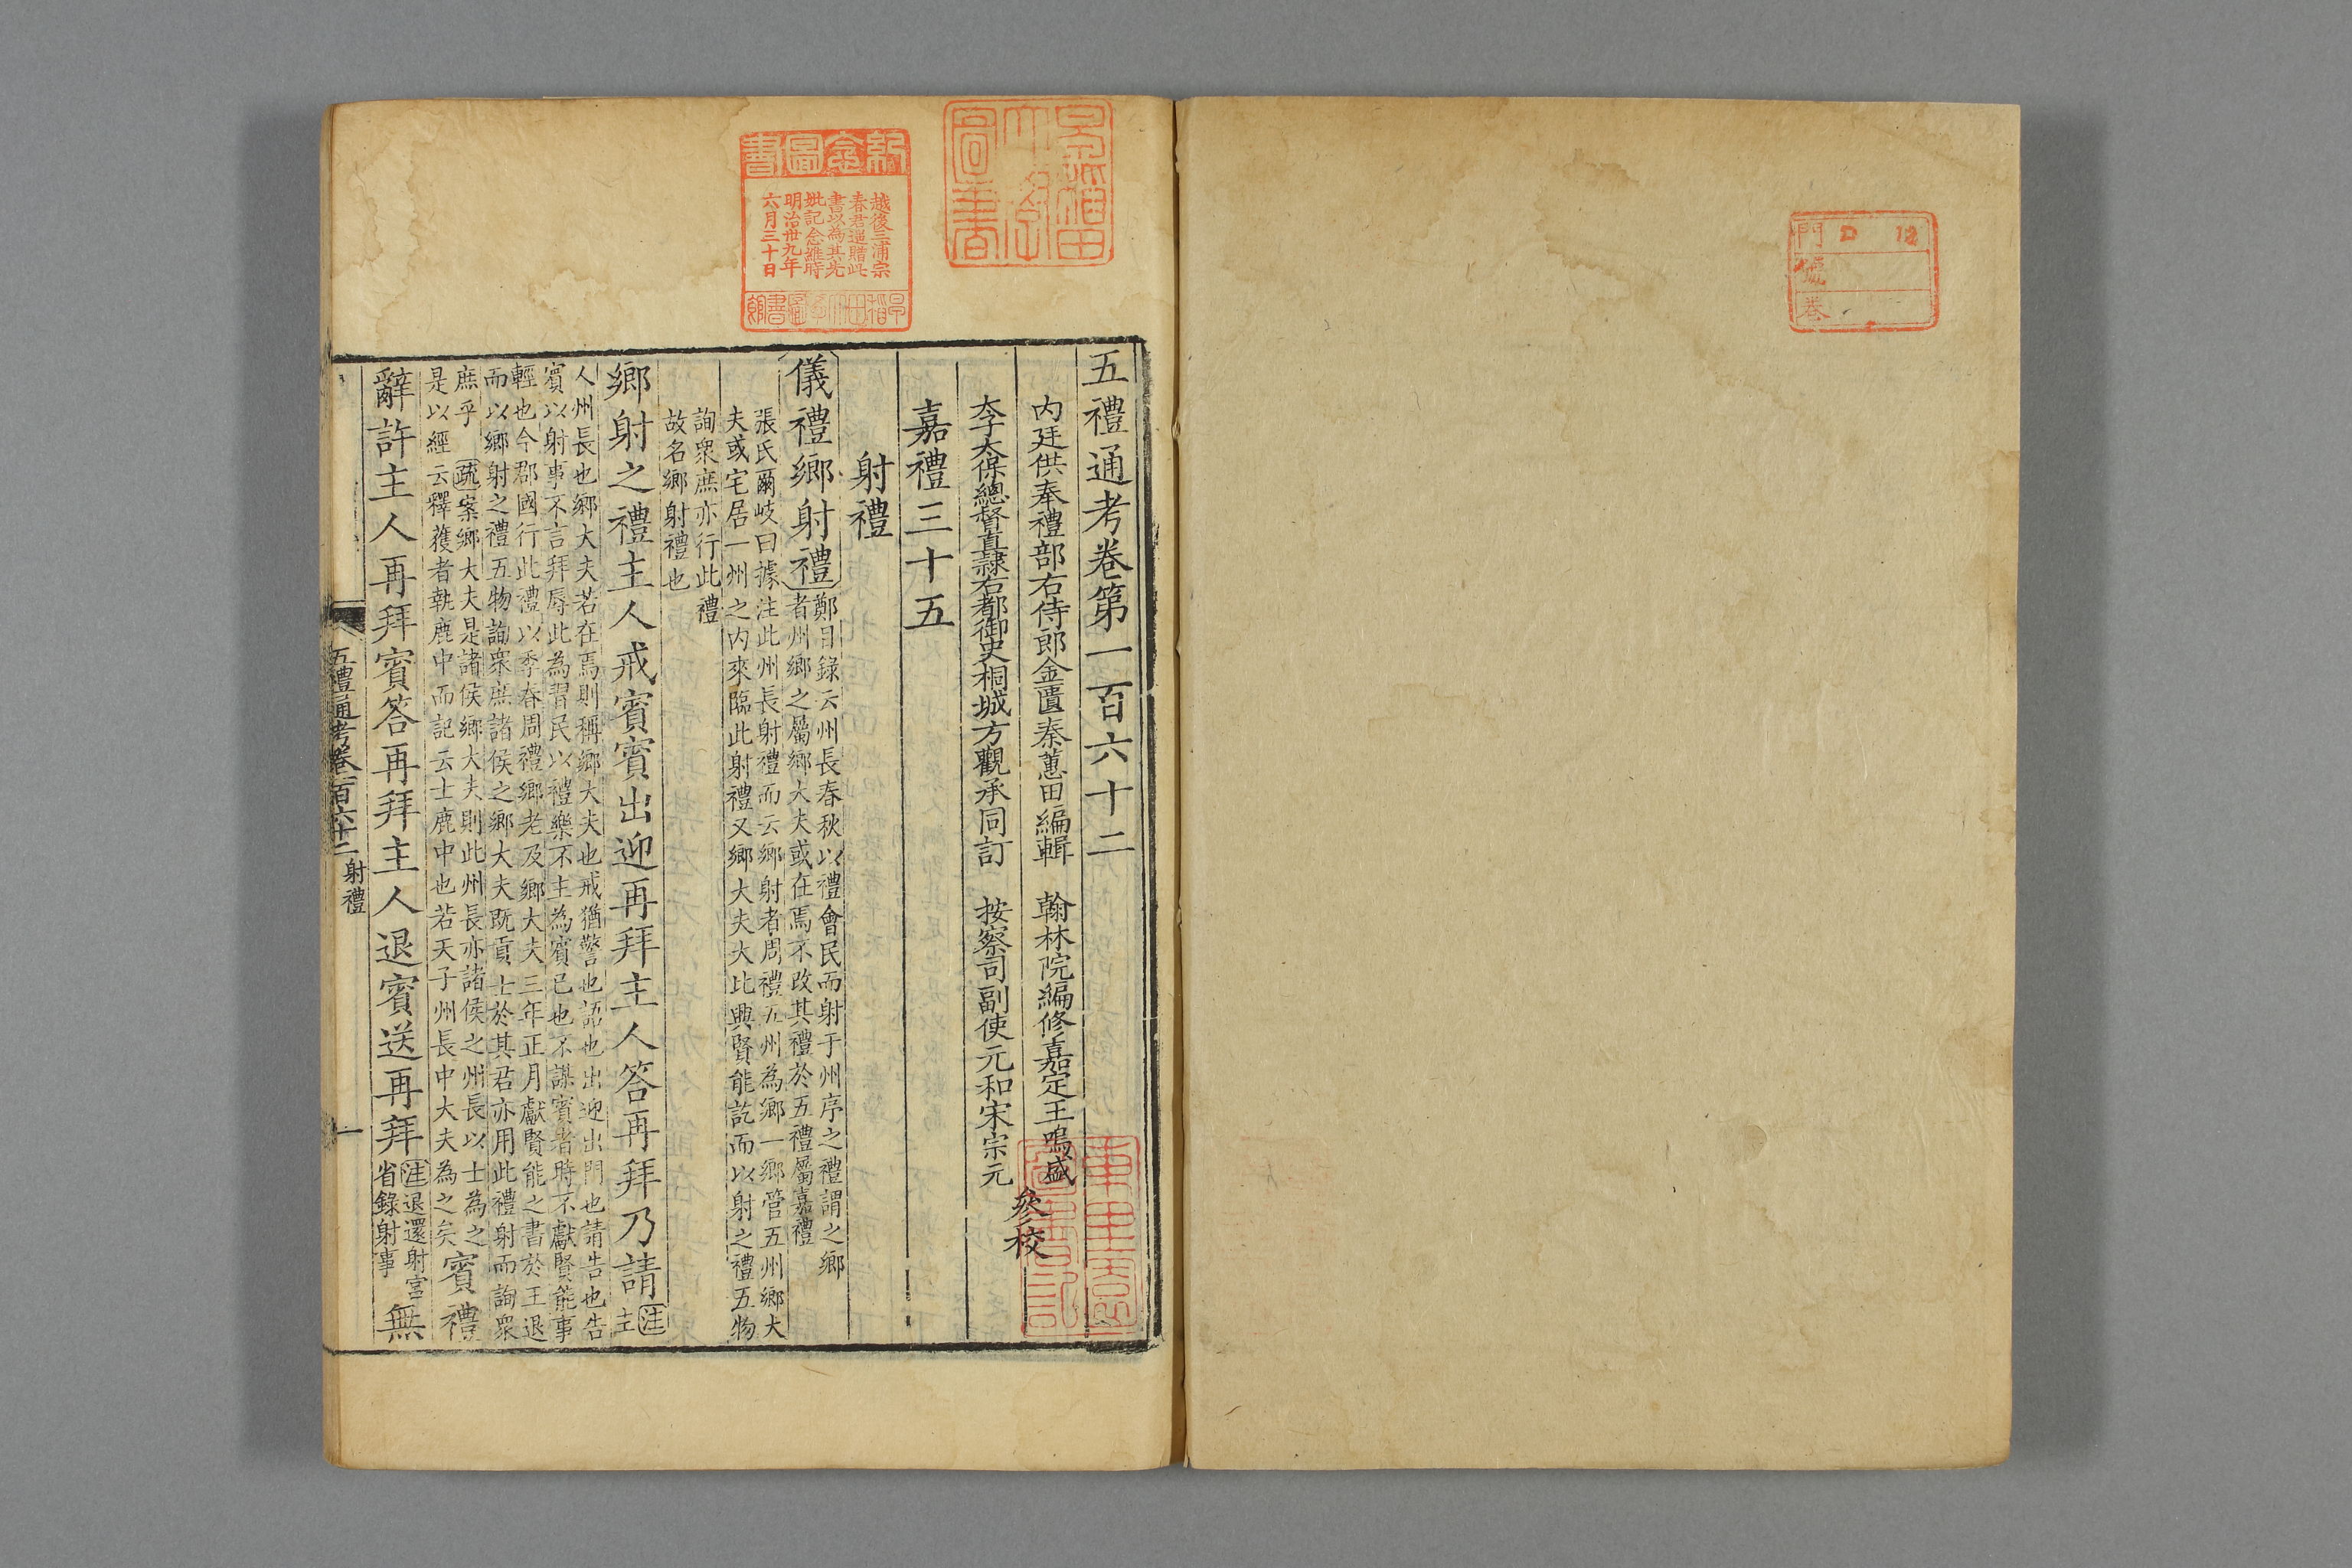 五禮通考卷第一百六十二
内廷供奉禮部右侍郎金匱秦蕙田編輯　翰林院編修嘉定王鳴盛
太子太保總督直隸右都御史桐城方觀承同訂　按察司副使元和宋宗元
參校
嘉禮三十五
射禮
儀禮鄉射禮
鄭目錄云州長春秋以禮會民而射于州序之禮謂之鄉
者州鄉之屬鄉大夫或在焉不改其禮於五禮屬嘉禮
張氏爾岐曰據注此州長射禮而云鄉射者周禮五州為鄉一鄉管五州鄉大
夫或宅居一州之内來臨此射禮又鄉大夫大比興賢能訖而以射之禮五物
詢衆庶亦行此禮
故名鄉射禮也
鄉射之禮主人戒賓賓出迎再拜主人答再拜乃請
注主
人州長也鄉大夫若在焉則稱鄉大夫也戒猶警也語也出迎出門也請告也告
賓以射事不言拜辱此為習民以禮樂不主為賓己也不謀賓者時不獻賢能事
輕也今郡國行此禮以季春周禮鄉老及鄉大夫三年正月獻賢能之書於王退
而以鄉射之禮五物詢衆庶諸侯之鄉大夫既貢士於其君亦用此禮射而詢衆
庶乎　疏案鄉大夫是諸侯鄉大夫則此州長亦諸侯之州長以士為之
是以經云釋獲者執鹿中而記云士鹿中也若天子州長中大夫為之矣
賓禮
辭許主人再拜賓答再拜主人退賓送再拜
注退還射宮
省錄射事
無
五禮通考卷一百六十二
射禮
一
紀念圖書
越後三浦宗
春君遥贈此
書以為其先
妣記念維時
明治卅九年
六月三十日
早稻田大學圖書館
早稲田大學圖書
門 D 12
號
卷